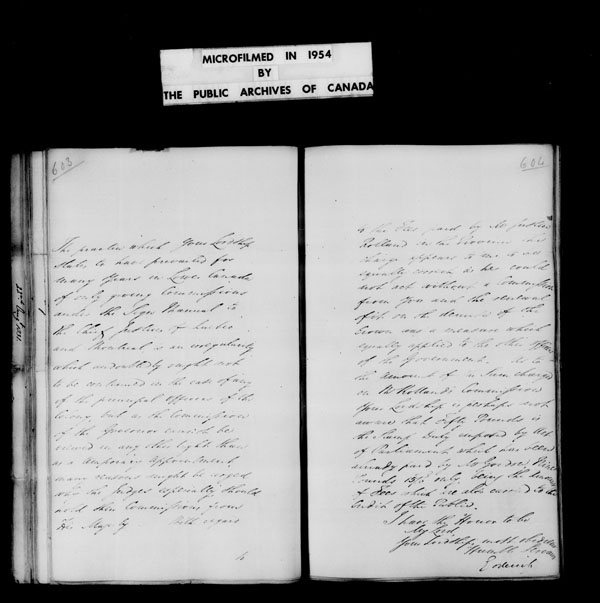 MICROFILMED IN 1954
BY
THE PUBLIC ARCHIVES OF CANADA
603
The practice which Your Lordship
States to have prevailed for
many Years in Lower Canada
of only giving Commissions
under the Sign Manual to
the Chf Justices of Quebec
and Montreal is an irregularity
which undoubtedly ought not
to be continued in the case of any
of the principal officers of the
Crown, but as the Commissions
of the Governor cannot be
viewed in any other light than
as a temporary appointment
many reasons might be urged
why the Judges especially should
hold their Commissions from
His Majesty With regard
to
604
to the Fees paid by Mr Justice
Rolland on the
charge appears to me to be
equally correct as he could
not act without a Commission
from you and the renewal
of it on the demise of the
Crown was a measure which
equally applied to the other officers
of the Government. As to
the amount of the Sum charged
on Mr Rolland's Commission
Your Lordship is perhaps not
aware that Fifty Pounds is
the Stamp Duty imposed by Act
of Parliament which was
already paid by Mr
Pounds only being the amount
of Fees which are also carried to the
credit of the Public.
I have the Honor to be
My Lord,
Your Lordship's most obedient
Humble Servant
Goderich